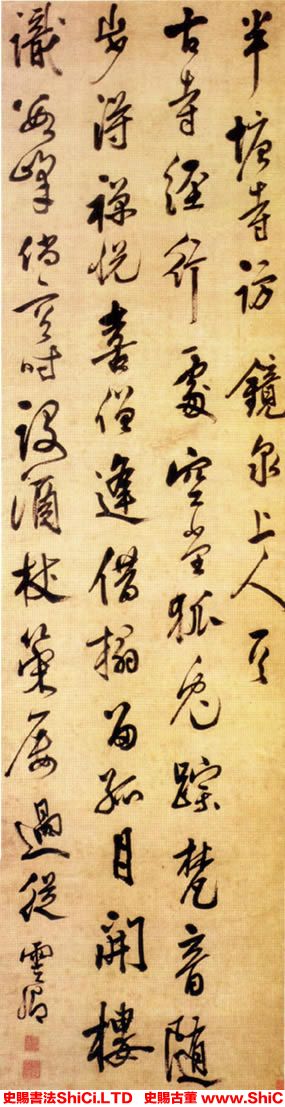 半塘寺訪鏡泉上人一首
古寺經行處空堂狐兔蹤梵音隨
步得禪悅喜僧逢借榻留孤月開樓
識數峰尚方時設酒杖策屢過從雲卿
史賜書法ShiCi.LTD 史賜古董 www.ShiC